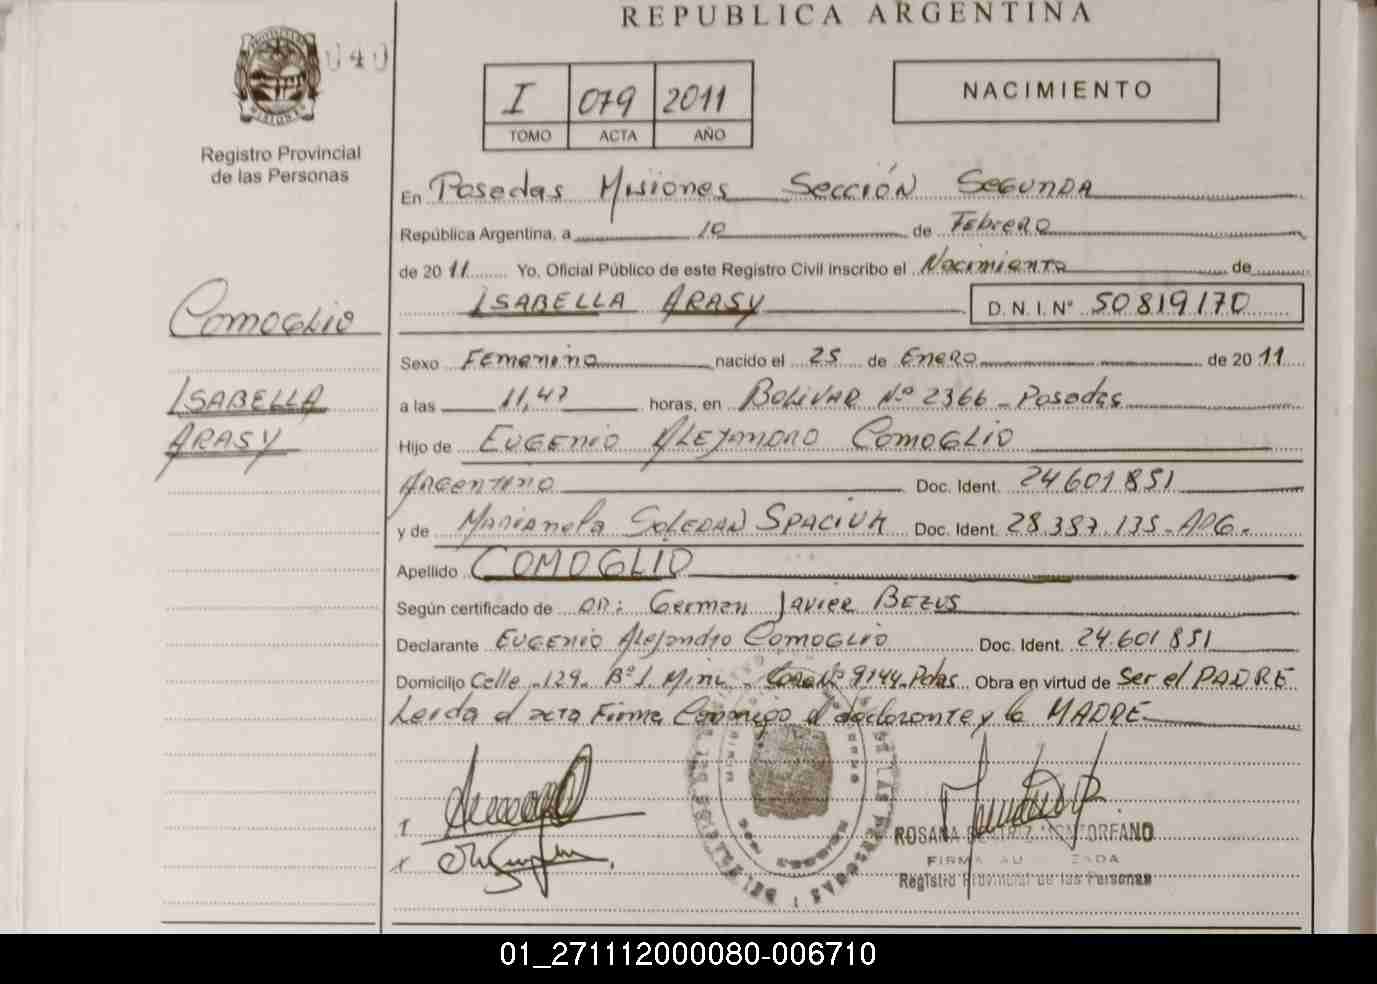 REPUBLICA ARGENTINA
040
I 079 2011
TOMO ACTA AÑO
NACIMIENTO
Registro Provincial
de las Personas
En Posadas Misiones Sección Segunda
República Argentina, a 10 de Febrero
de 2011 Yo, Oficial Público de este Registro Civil inscribo el Nacimiento de
ISABELLA ARASY D. N. I. Nº 50819170
Comoglio
ISABELLA
ARASY
Sexo Femenino nacido el 25 de Enero de 2011
a las 11,47 horas, en Bolivar Nº 2366 - Posadas
Hijo de Eugenio Alejandro Comoglio
Argentino Doc. Ident. 24.601.851
y de Marianela Soledad Spaciuk Doc. Ident. 28.387.135 - ARG.
Apellido COMOGLIO
Según certificado de DR: German Javier Bezus
Declarante Eugenio Alejandro Comoglio Doc. Ident. 24.601.851
Domicilio Calle 129 - Bº Casa Nº 9144 - Pdas Obra en virtud de Ser el PADRE
Leida el acta Firma Conmigo el declarante y la MADRE
ROSANA
FIRMA
Registro Provincial de las Personas
01_271112000080-006710